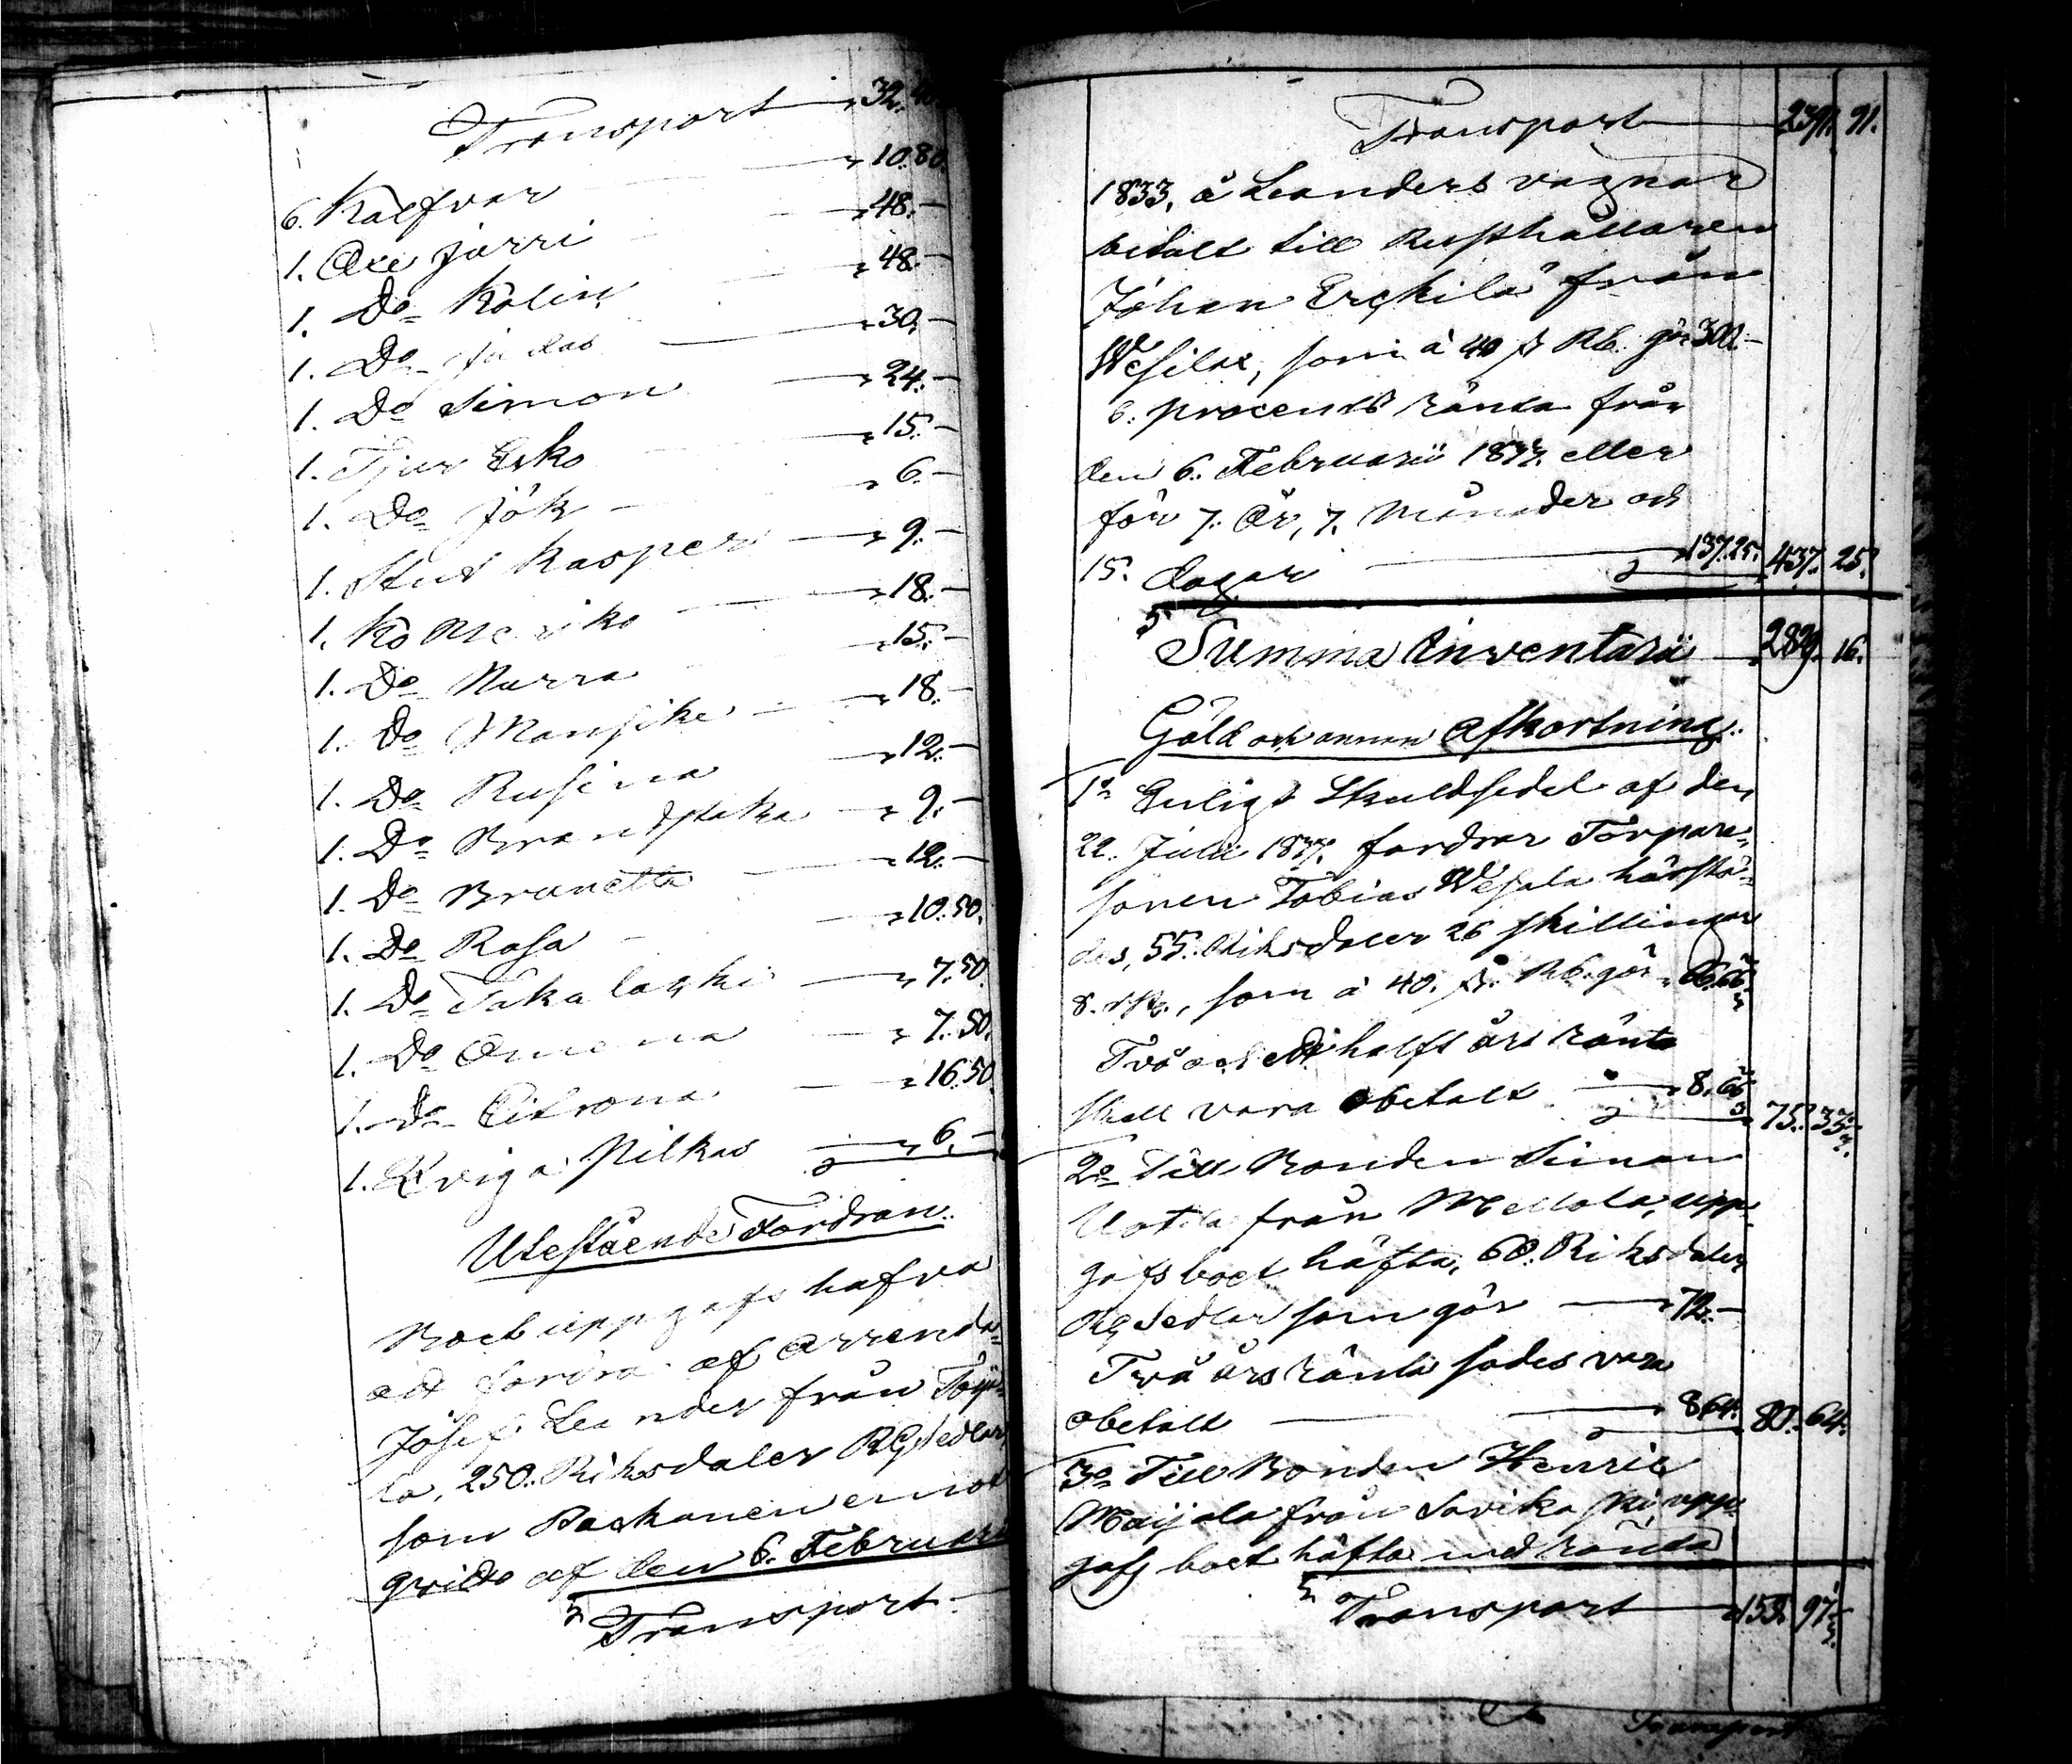 Transport 32.40.
6. Kalfvar 10.80.
1. Oxe Jarri 48.–
1. Do Kolin 48.–
1. Do Judas 30.–
1. Do Simon 24.–
1. Tjur Esko 15.–
1. Do Jök 6.–
1. Stut Kasper 9.–
1. Ko Meriko 18.–
1. Do Murra 15.–
1. Do Mansike 18.–
1. Do Rusina 12.–
1. Do Brandstaka 9.–
1. Do Brunetta 12.–
1. Do Rosa 10.50.
1. Do Takalaski 7.50.
1. Do Omena 7.50.
1. Do Citrona 16.50
1. Qviga Pilkas 6.–
Utestående Fordran.
Boet uppgafs hafva
att fordra af Arrenda-
Josef Leander från
la, 250. Riksdaler RGsedlar
som Paskanen emot
qvitto af den 6. Februari
Transport
Transport 2391. 91.
1833, å Leanders vägnar
betalt till Rusthållaren
Johan Erckilä från
Wesilax, som à 40 ß Rb. gör 300.–
6. procents ränta från
den 6. Februarii eller
för 7. År, 7. Månader och
15. dagar 137.25. 437. 25.
Summa Inventarii 2829. 16.
Gäld och annan Afkortning.
1o Enligt Skuldsedel af den
22. Julii fordrar Torpare-
sonen Tobias Wesala härstä-
des, 55. Riksdaler 26 skillingar
8. rst., som à 40. ß. Rb. gör 66.66
Två och ett halft års ränta
skall vara obetalt 8.66 75. 33
2o Till Bonden Simon
Uotila från Mellola, upp-
gafs boet häfta, 60. Riksdaler
RGsedlar som gör 72.–
Två års ränta sades vara
obetalt 8.64. 80. 64.
3o Till Bonden Henric
Maijala från Savikoski, upp-
gafs boet häfta med ränta
Transport 97
Transport